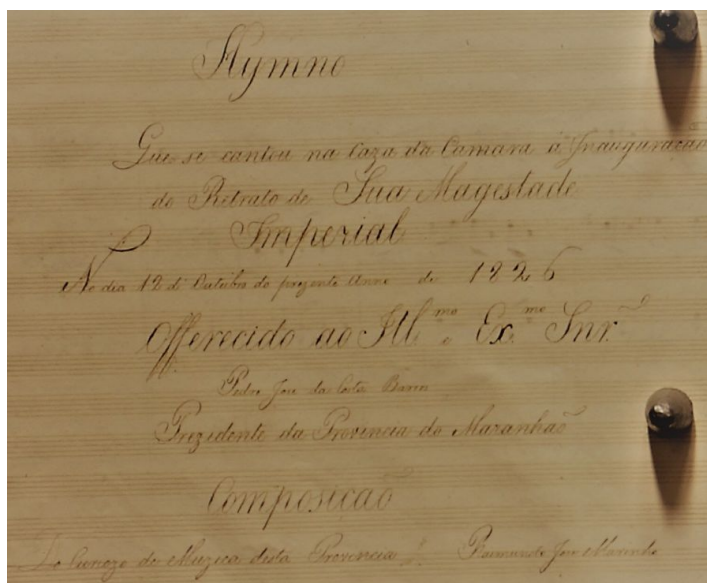 Hymno
Que se cantou na Caza da Camara á Inauguração
do Retrato de Sua Magestade
Imperial
No dia 12 di Outubro do prezente Anno de 1826
Offerecido ao Ill.mo e Ex.mo Snr.
Pedro Joze da Costa Barros
Prezidente da Provincia do Maranhão
Composicão
de Muzica desta Provincia Raimundo Joze Marinho